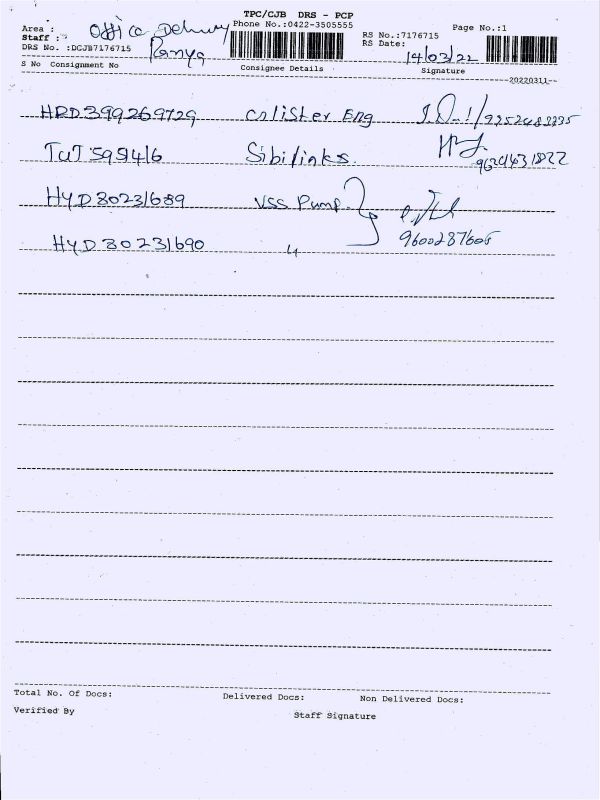 TPC/CJB DRS - PCP
Area : Office Delivery
Phone No.:0422-3505555
Page No.:1
Staff : Ranya
RS No.:7176715
DRS No. :DCJB7176715
RS Date: 14/03/22
S No Consignment No Consignee Details Signature
20220311
HRD399269729 Calister Eng
TUT595416 Sibilinks.
HYD80231689 VSS Pump
HYD80231690 "
9600287605
Total No. Of Docs: Delivered Docs: Non Delivered Docs:
Verified By Staff Signature